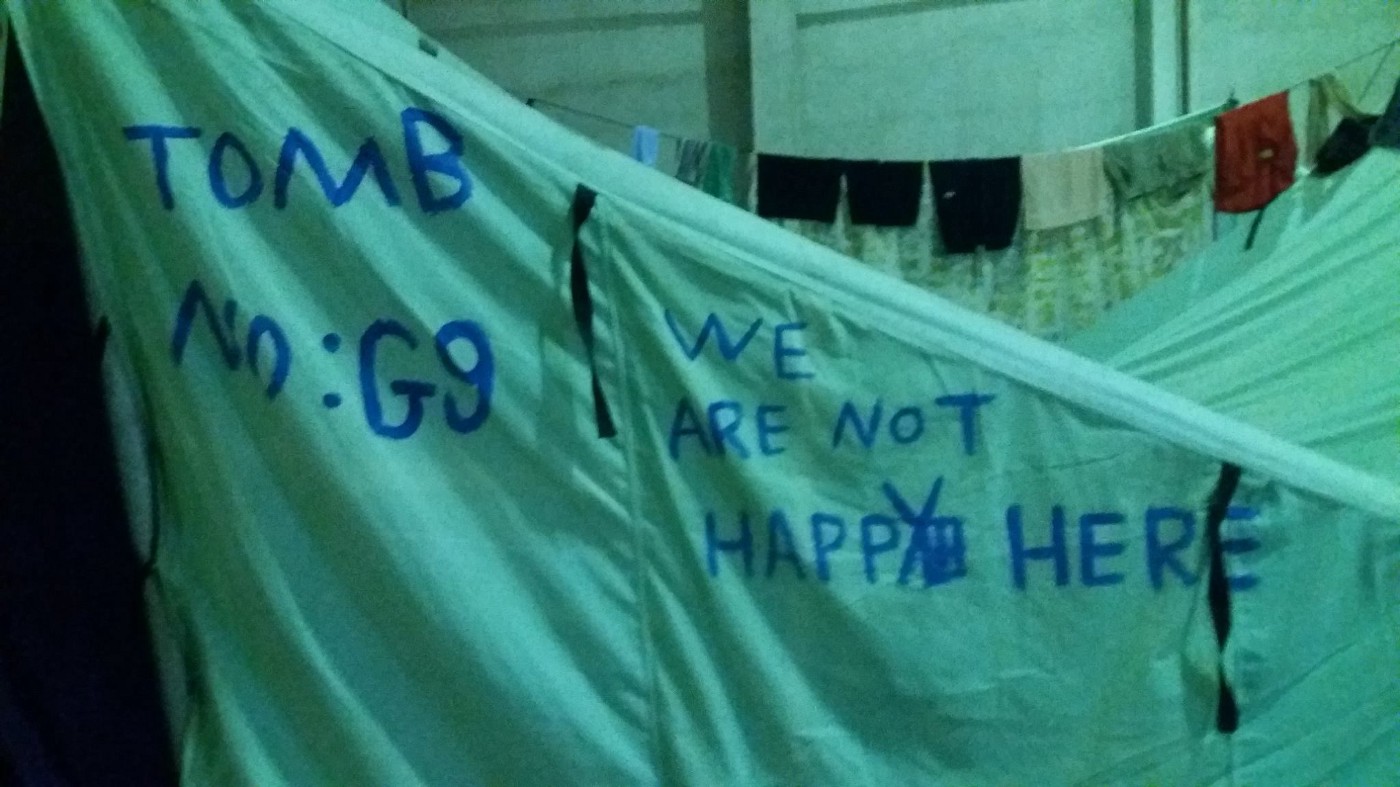 TOMB
NO:G9
WE
ARE NOT
HAPPY HERE